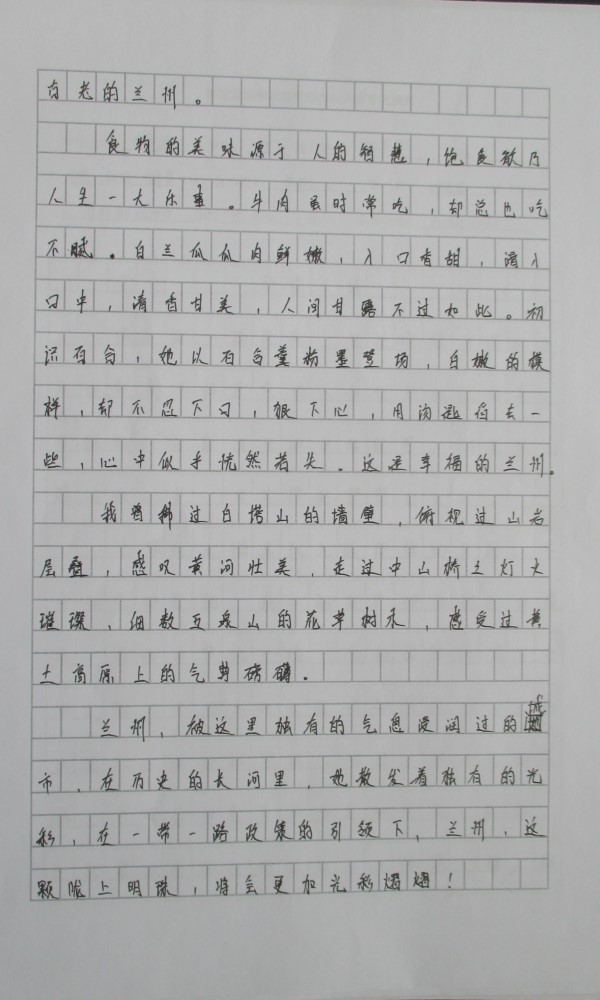 古老的兰州。
食物的美味源于人的智慧，饱食欲乃
人生一大乐事。牛肉面时常吃，却总也吃
不腻。白兰瓜瓜肉鲜嫩，入口香甜，滑入
口中，清香甘美，人间甘露不过如此。初
识百合，她以百合羹粉墨登场，白嫩的模
样，却不忍下口，狠下心，用汤匙舀去一
些，心中似乎恍然若失。这是幸福的兰州。
我曾摸过白塔山的墙壁，俯视过山岩
层叠，感叹黄河壮美，走过中山桥之灯火
璀璨，细数五泉山的花草树木，感受过黄
土高原上的气势磅礴。
兰州，被这里独有的气息浸润过的城
市，在历史的长河里，她散发着独有的光
彩，在一带一路政策的引领下，兰州，这
颗陇上明珠，将会更加光彩熠熠！